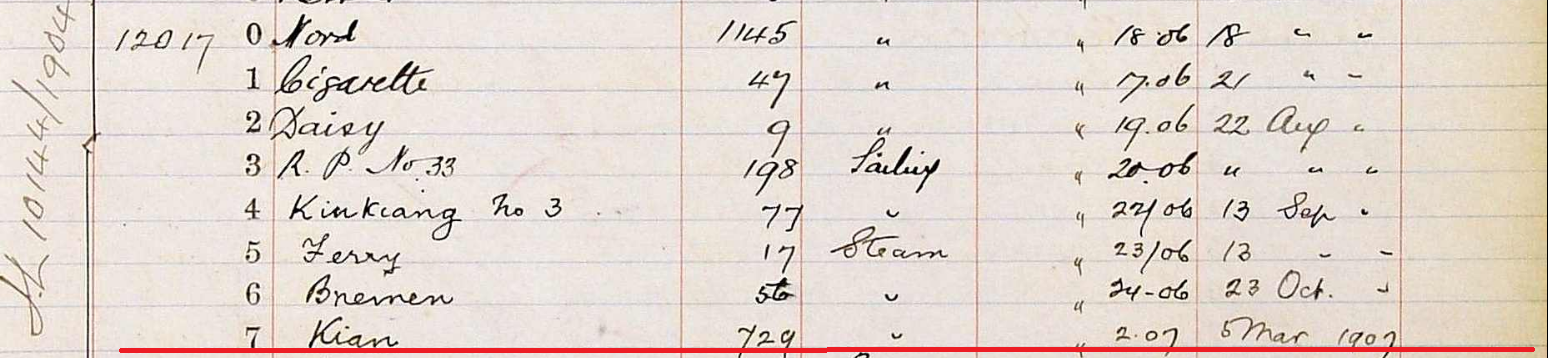 12017 0 Nord 1145 " " 18.06 18 " "
1 Cigarette 47 " " 17.06 21 " "
2 Daisy 9 " " 19.06 22 Aug "
3 R. P. No. 33 198 Sailing " 20.06 " " "
4 Kiukiang No 3 77 " " 22/06 13 Sep "
5 Ferry 17 Steam " 23/06 13 " "
6 Bremen 56 " " 24-06 23 Oct. "
7 Kian 729 " " 2.07 5 Mar 1907
10144/1904